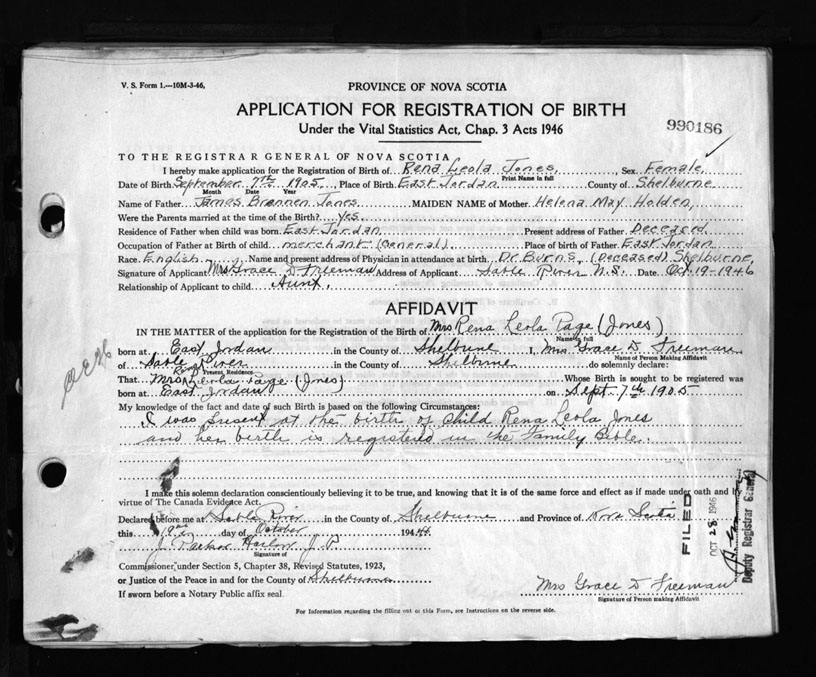 V. S. Form 1.—10M-3-46,
PROVINCE OF NOVA SCOTIA
APPLICATION FOR REGISTRATION OF BIRTH
Under the Vital Statistics Act, Chap. 3 Acts 1946
990186
TO THE REGISTRAR GENERAL OF NOVA SCOTIA
I hereby make application for the Registration of Birth of Rena Leola Jones, Sex Female,
Print Name in full
Date of Birth September 7th 1905, Place of Birth East Jordan County of Shelburne
Month Date Year
Name of Father James Brannen Jones MAIDEN NAME of Mother Helena May Holden,
Were the Parents married at the time of the Birth? Yes.
Residence of Father when child was born East Jordan Present address of Father Deceased
Occupation of Father at Birth of child merchant (General) Place of birth of Father East Jordan
Race English Name and present address of Physician in attendance at birth Dr. Burns, (Deceased) Shelburne,
Signature of Applicant Mrs Grace D Freeman Address of Applicant Sable River N.S. Date Oct. 19-1946
Relationship of Applicant to child Aunt.
AFFIDAVIT
IN THE MATTER of the application for the Registration of the Birth of Mrs Rena Leola Page (Jones)
Name in full
born at East Jordan in the County of Shelburne I, Mrs Grace D Freeman
Name of Person Making Affidavit
of Sable River in the County of Shelburne do solemnly declare:
Present Residence
That Mrs Rena Leola Page (Jones) Whose Birth is sought to be registered was
born at East Jordan on Sept 7th 1905
My knowledge of the fact and date of such Birth is based on the following Circumstances:
I was present at the birth of child Rena Leola Jones
and her birth is registered in the Family Bible.
I make this solemn declaration conscientiously believing it to be true, and knowing that it is of the same force and effect as if made under oath and by
virtue of The Canada Evidence Act.
Declared before me at Sable River in the County of Shelburne and Province of Nova Scotia
this day of October 1946
Harlow J. P.
Signature of
Commissioner under Section 5, Chapter 38, Revised Statutes, 1923,
or Justice of the Peace in and for the County of Shelburne
If sworn before a Notary Public affix seal.
Mrs Grace D Freeman
Signature of Person making Affidavit
For Information regarding the filling out of this Form, see Instructions on the reverse side.
FILED
OCT 28 1946
Deputy Registrar General